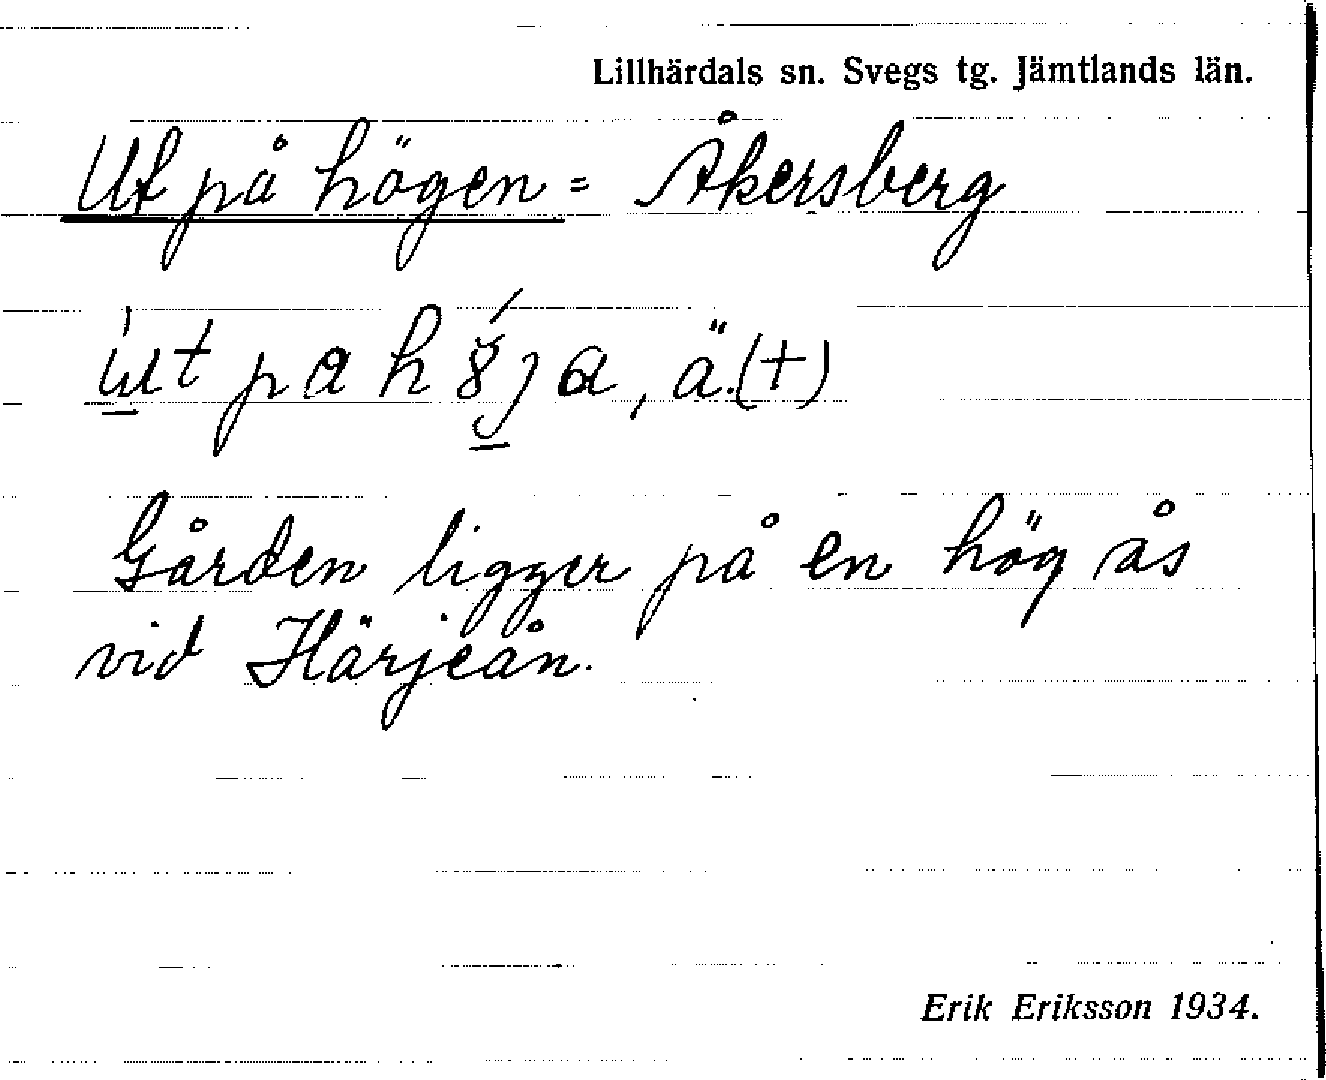 Lillhärdals sn. Svegs tg. Jämtlands län.
Ut på högen = Åkersberg
ut pa hö̀ja, ä.(+)
Gården ligger på en hög ås
vid Härjeån.
Erik Eriksson 1934.